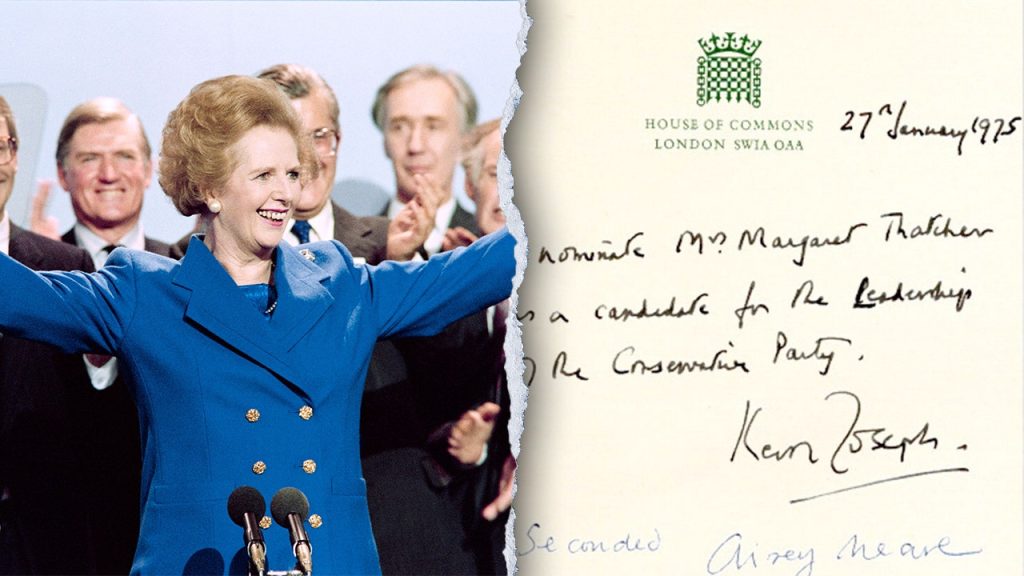 HOUSE OF COMMONS
LONDON SW1A OAA
27th January 1975
nominate Mrs Margaret Thatcher
s a candidate for the Leadership
the Conservative Party.
Keith Joseph.
Seconded Airey Neave